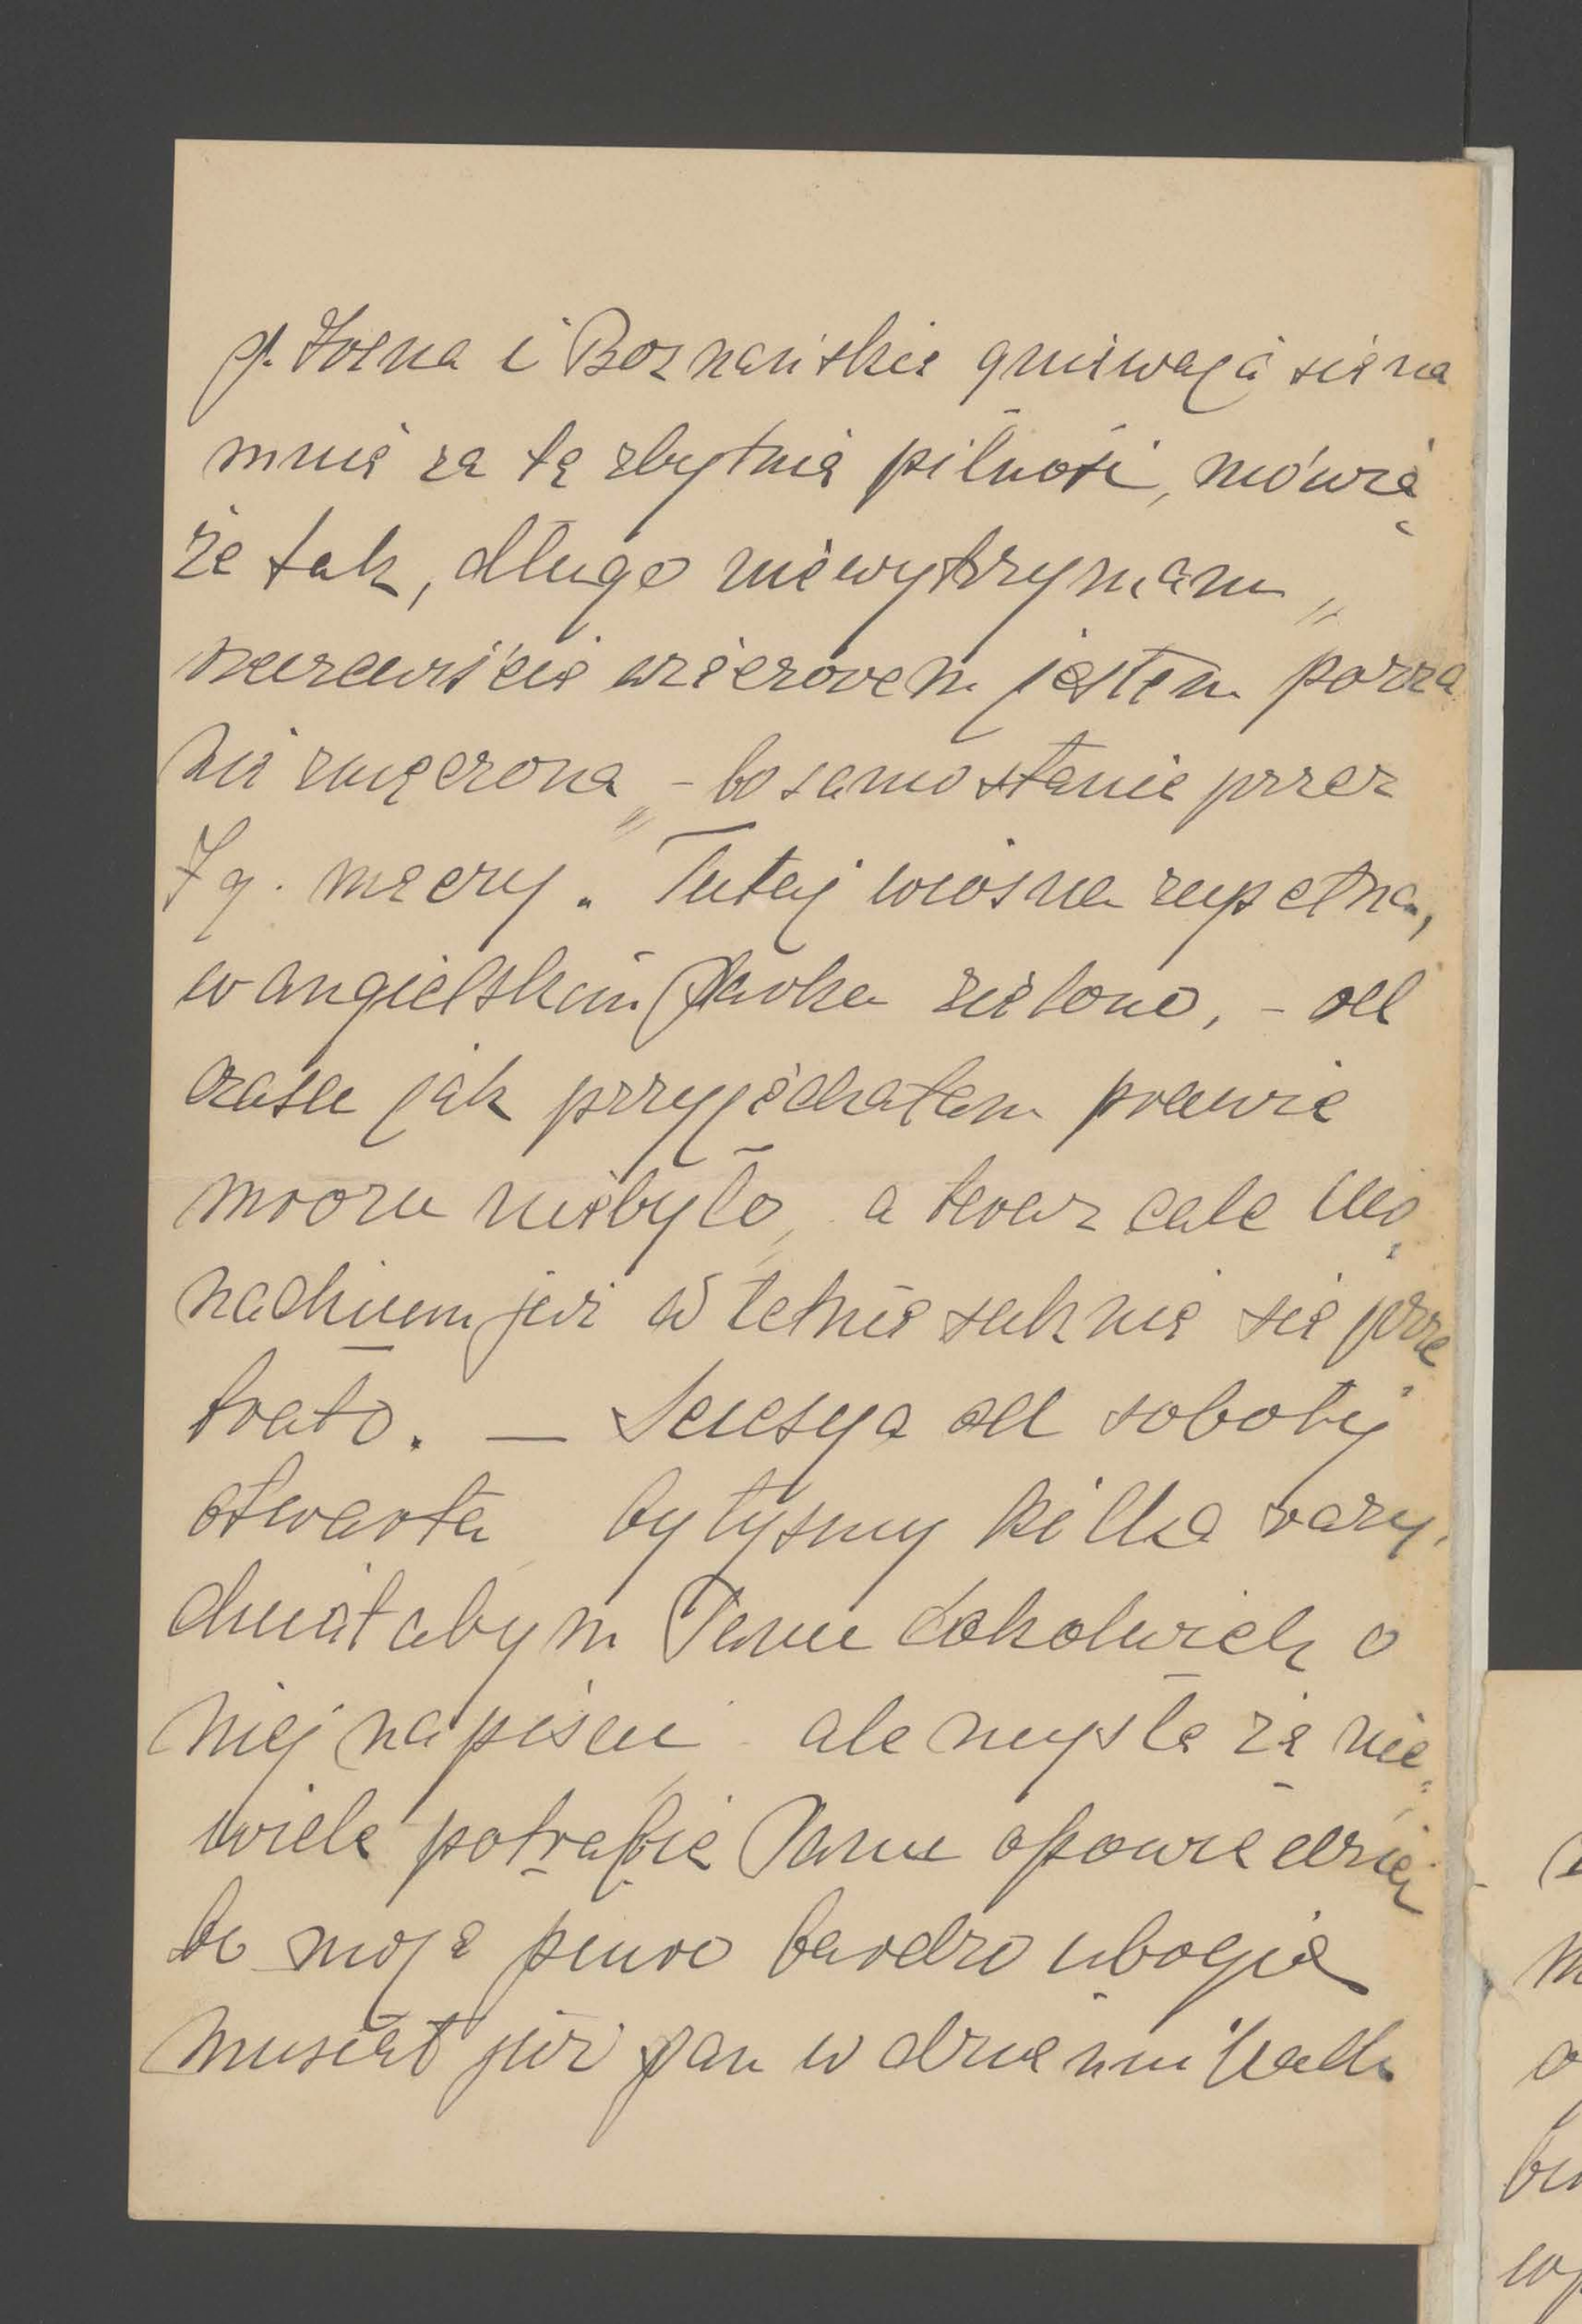 p. Tosna i Boznańskie gniewają się na
mnie za tę zbytnią pilność, mówią
że tak, długo niewytrzymam,,
rzeczewiście wieczorem jestem porzą
nie zmęczona,, – bo samo stanie przez
7 g. męczy. Tutaj wiosna zupełna,
w angielskim Parku zielono, – od
czasu jak przyjechałam prawie
mrozu niebyło, a teraz całe Mo„
nachium już w letnie suknie się prze„
brało. — Secesya od soboty
otwarta byłyśmy kilka razy,
chciałabym Panu cokolwiek o
niej napisać, ale myślę że nie„
wiele potrafię Panu opowiedzieć
bo moje pióro bardzo ubogie
musiał już pan w dziennikach
m